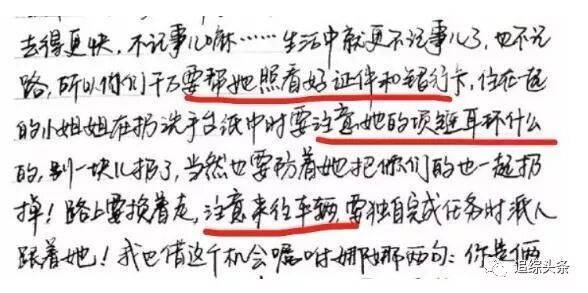 去得更快，不记事儿嘛……生活中就更不记事儿了，也不认
路，所以你们千万要帮她照看好证件和银行卡，住在一起
的小姐姐在扔洗手台纸巾时要注意她的项链耳环什么
的，别一块儿扔了，当然也要防着她把你们的也一起扔
掉！路上要挨着走，注意来往车辆，要独自完成任务时派人
跟着她！我也借这个机会嘱咐娜娜两句：你是俩
追综头条